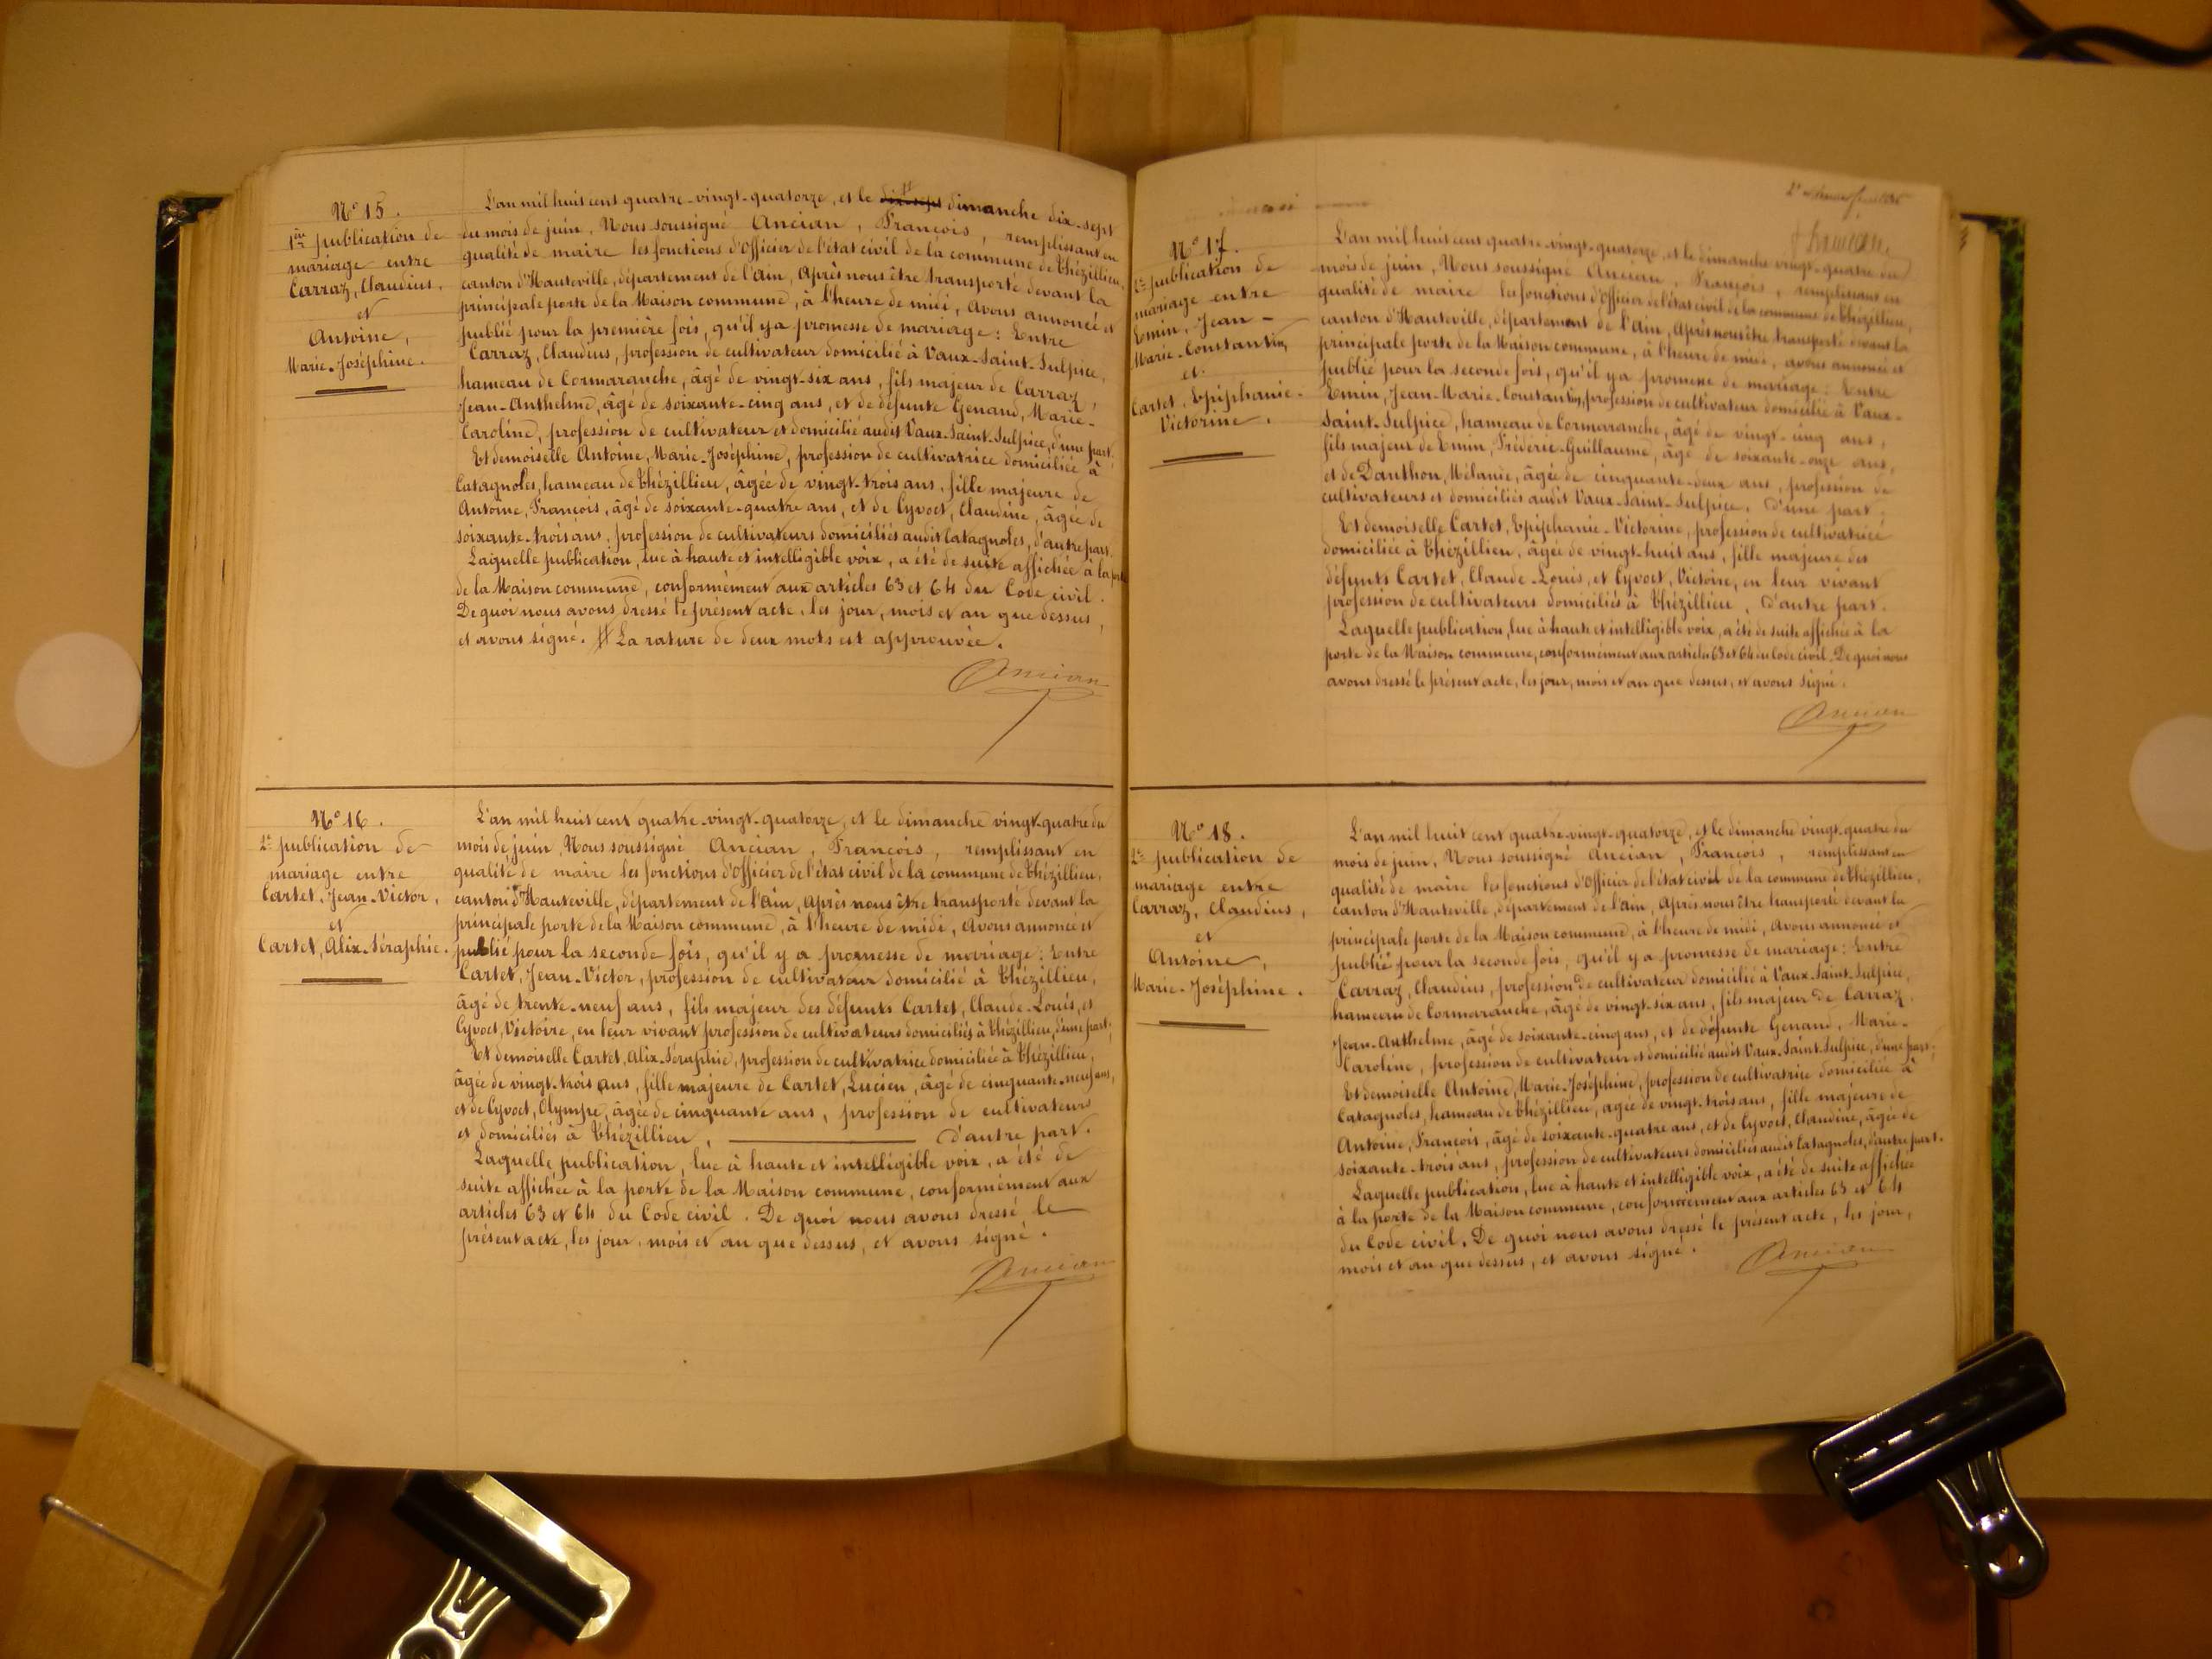 N° 15.
1ère publication de
mariage entre
Carraz, Claudius,
et
Antoine,
Marie-Joséphine.
L'an mil huit cent quatre-vingt-quatorze, et le dix-sept dimanche dix-sept
du mois de juin, Nous soussigné Ancian, François, remplissant en
qualité de maire les fonctions d'Officier de l'état civil de la commune de Thézillieu,
canton d'Hauteville, département de l'Ain, Après nous être transporté devant la
principale porte de la Maison commune, à l'heure de midi, Avons annoncé et
publié pour la première fois, qu'il y a promesse de mariage: Entre
Carraz, Claudius, profession de cultivateur domicilié à Vaux-Saint-Sulpice,
hameau de Cormaranche, âgé de vingt-six ans, fils majeur de Carraz,
Jean-Anthelme, âgé de soixante-cinq ans, et de défunte Genand, Marie-
Caroline, profession de cultivateur et domicilié audit Vaux-Saint-Sulpice, d'une part;
Et demoiselle Antoine, Marie-Joséphine, profession de cultivatrice domiciliée à
Catagnoles, hameau de Thézillieu, âgée de vingt-trois ans, fille majeure de
Antoine, François, âgé de soixante-quatre ans, et de Cyvoct, Claudine, âgée de
soixante-trois ans, profession de cultivateurs domiciliés audit Catagnoles, d'autre part.
Laquelle publication, lue à haute et intelligible voix, a été de suite affichée à la porte
de la Maison commune, conformément aux articles 63 et 64 du Code civil.
De quoi nous avons dressé le présent acte, les jour, mois et an que dessus,
et avons signé. # La rature de deux mots est approuvée.
Ancian
N° 16.
2e publication de
mariage entre
Cartet, Jean-Victor,
et
Cartet, Alix-Séraphie.
L'an mil huit cent quatre-vingt-quatorze, et le dimanche vingt-quatre du
mois de juin, Nous soussigné Ancian, François, remplissant en
qualité de maire les fonctions d'Officier de l'état civil de la commune de Thézillieu,
canton d'Hauteville, département de l'Ain, Après nous être transporté devant la
principale porte de la Maison commune, à l'heure de midi, Avons annoncé et
publié pour la seconde fois, qu'il y a promesse de mariage: Entre
Cartet, Jean-Victor, profession de cultivateur domicilié à Thézillieu,
âgé de trente-neuf ans, fils majeur des défunts Cartet, Claude-Louis, et
Cyvoct, Victoire, en leur vivant profession de cultivateurs domiciliés à Thézillieu, d'une part;
Et demoiselle Cartet, Alix-Séraphie, profession de cultivatrice domiciliée à Thézillieu,
âgée de vingt-trois ans, fille majeure de Cartet, Lucien, âgé de cinquante-neuf ans,
et de Cyvoct, Olympe, âgée de cinquante ans, profession de cultivateurs
et domiciliés à Thézillieu, d'autre part.
Laquelle publication, lue à haute et intelligible voix, a été de
suite affichée à la porte de la Maison commune, conformément aux
articles 63 et 64 du Code civil. De quoi nous avons dressé le
présent acte, les jour, mois et an que dessus, et avons signé.
Ancian
N° 17.
2e publication de
mariage entre
Emin, Jean-
Marie-Constantin,
et
Cartet, Epiphanie-
Victorine.
L'an mil huit cent quatre-vingt-quatorze, et le dimanche vingt-quatre du
mois de juin, Nous soussigné Ancian, François, remplissant en
qualité de maire les fonctions d'Officier de l'état civil de la commune de Thézillieu,
canton d'Hauteville, département de l'Ain, Après nous être transporté devant la
principale porte de la Maison commune, à l'heure de midi, avons annoncé et
publié pour la seconde fois, qu'il y a promesse de mariage: Entre
Emin, Jean-Marie-Constantin, profession de cultivateur domicilié à Vaux-
Saint-Sulpice, hameau de Cormaranche, âgé de vingt-cinq ans,
fils majeur de Emin, Frédéric-Guillaume, âgé de soixante-onze ans,
et de Danthon, Mélanie, âgée de cinquante-deux ans, profession de
cultivateurs et domiciliés audit Vaux-Saint-Sulpice, d'une part;
Et demoiselle Cartet, Epiphanie-Victorine, profession de cultivatrice
domiciliée à Thézillieu, âgée de vingt-huit ans, fille majeure des
défunts Cartet, Claude-Louis, et Cyvoct, Victoire, en leur vivant
profession de cultivateurs domiciliés à Thézillieu, d'autre part.
Laquelle publication, lue à haute et intelligible voix, a été de suite affichée à la
porte de la Maison commune, conformément aux articles 63 et 64 du Code civil. De quoi nous
avons dressé le présent acte, les jour, mois et an que dessus, et avons signé.
Ancian
N° 18.
2e publication de
mariage entre
Carraz, Claudius,
et
Antoine,
Marie-Joséphine.
L'an mil huit cent quatre-vingt-quatorze, et le dimanche vingt-quatre du
mois de juin, Nous soussigné Ancian, François, remplissant en
qualité de maire les fonctions d'Officier de l'état civil de la commune de Thézillieu,
canton d'Hauteville, département de l'Ain, Après nous être transporté devant la
principale porte de la Maison commune, à l'heure de midi, Avons annoncé et
publié pour la seconde fois, qu'il y a promesse de mariage: Entre
Carraz, Claudius, profession de cultivateur domicilié à Vaux-Saint-Sulpice,
hameau de Cormaranche, âgé de vingt-six ans, fils majeur de Carraz,
Jean-Anthelme, âgé de soixante-cinq ans, et de défunte Genand, Marie-
Caroline, profession de cultivateur et domicilié audit Vaux-Saint-Sulpice, d'une part;
Et demoiselle Antoine, Marie-Joséphine, profession de cultivatrice domiciliée à
Catagnoles, hameau de Thézillieu, agée de vingt-trois ans, fille majeure de
Antoine, François, âgé de soixante-quatre ans, et de Cyvoct, Claudine, âgée de
soixante-trois ans, profession de cultivateurs domiciliés audit Catagnoles, d'autre part.
Laquelle publication, lue à haute et intelligible voix, a été de suite affichée
à la porte de la Maison commune, conformément aux articles 63 et 64
du Code civil. De quoi nous avons dressé le présent acte, les jour,
mois et an que dessus, et avons signé.
Ancian